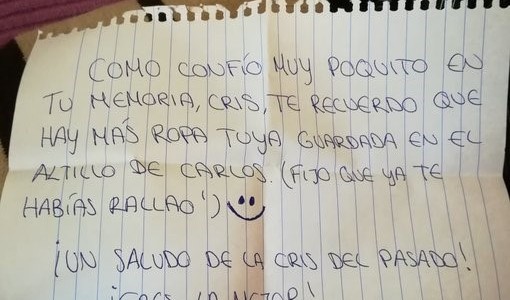 COMO CONFÍO MUY POQUITO EN
TU MEMORIA, CRIS, TE RECUERDO QUE
HAY MÁS ROPA TUYA GUARDADA EN EL
ALTILLO DE CARLOS. (FIJO QUE YA TE
HABÍAS RALLAO')
¡UN SALUDO DE LA CRIS DEL PASADO!